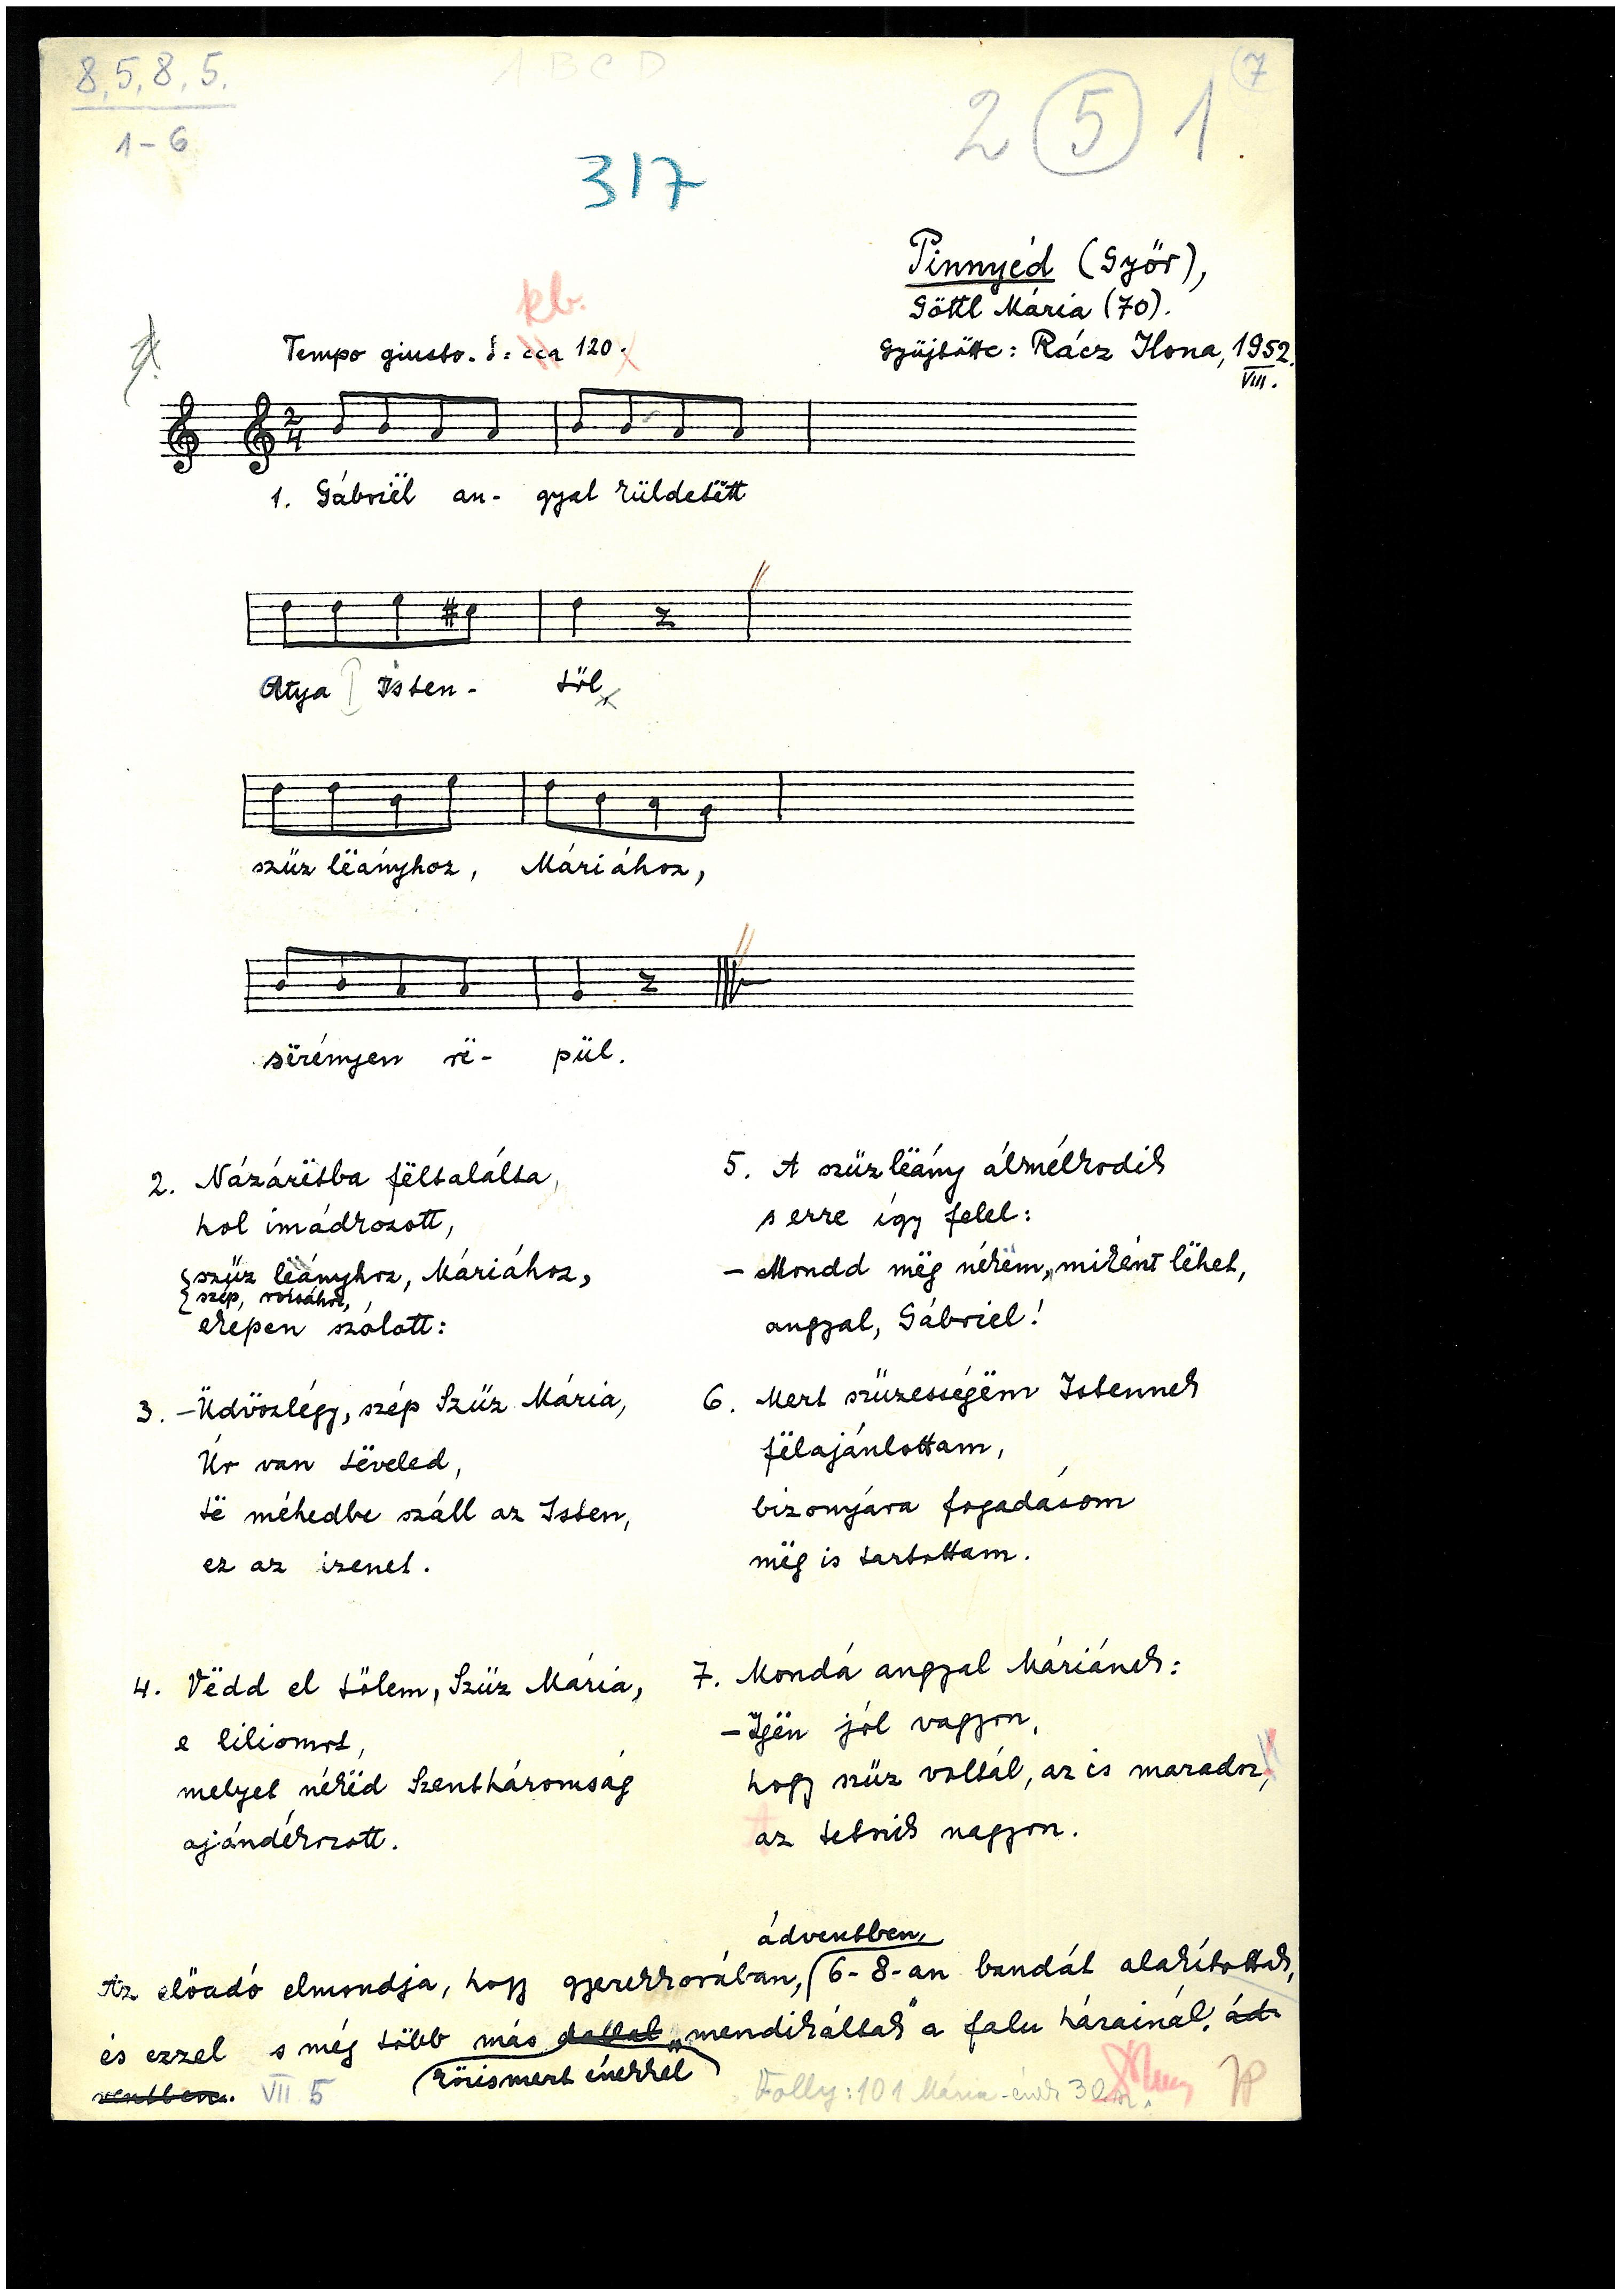 8, 5, 8, 5.
1 - 6
1 B C D
2 5 1
7
317
Pinnyéd (Győr),
Göttl Mária (70).
Gyűjtötte: Rácz Ilona, 1952.
VIII.
kb.
Tempo giusto. ♩ = cca 120.
2
4
1. Gábriël an- gyal küldetëtt
Atya Isten- től
szűz lëányhoz, Máriához,
sërényen rë- pül.
2. Názárëtba fëltalálta,
hol imádkozott,
szűz lëányhoz, Máriához,
szép, rózsához,
eképen szólott:
3. - Üdvözlégy, szép Szűz Mária,
Úr van tëveled,
të méhedbe száll az Isten,
ez az izenet.
4. Vëdd el tőlem, Szűz Mária,
e liliomot,
melyet nékëd Szentháromság
ajándékozott.
5. A szűz lëány álmélkodik
s erre így felel:
- Mondd mëg nékëm, miként lëhet,
angyal, Gábriel!
6. Mert szüzességëm Istennek
fëlajánlottam,
bizonyára fogadásom
mëg is tartottam.
7. Mondá angyal Máriának:
- Igën jól vagyon,
hogy szűz voltál, az is maradsz,
az tetszik nagyon.
ádventben,
Az előadó elmondja, hogy gyerekkorában, 6-8-an bandát alakítottak,
és ezzel s még több más dallal „mendikáltak" a falu házainál, ád-
ventben.
közismert énekkel
VII 5
Volly: 101 Mária-ének 30